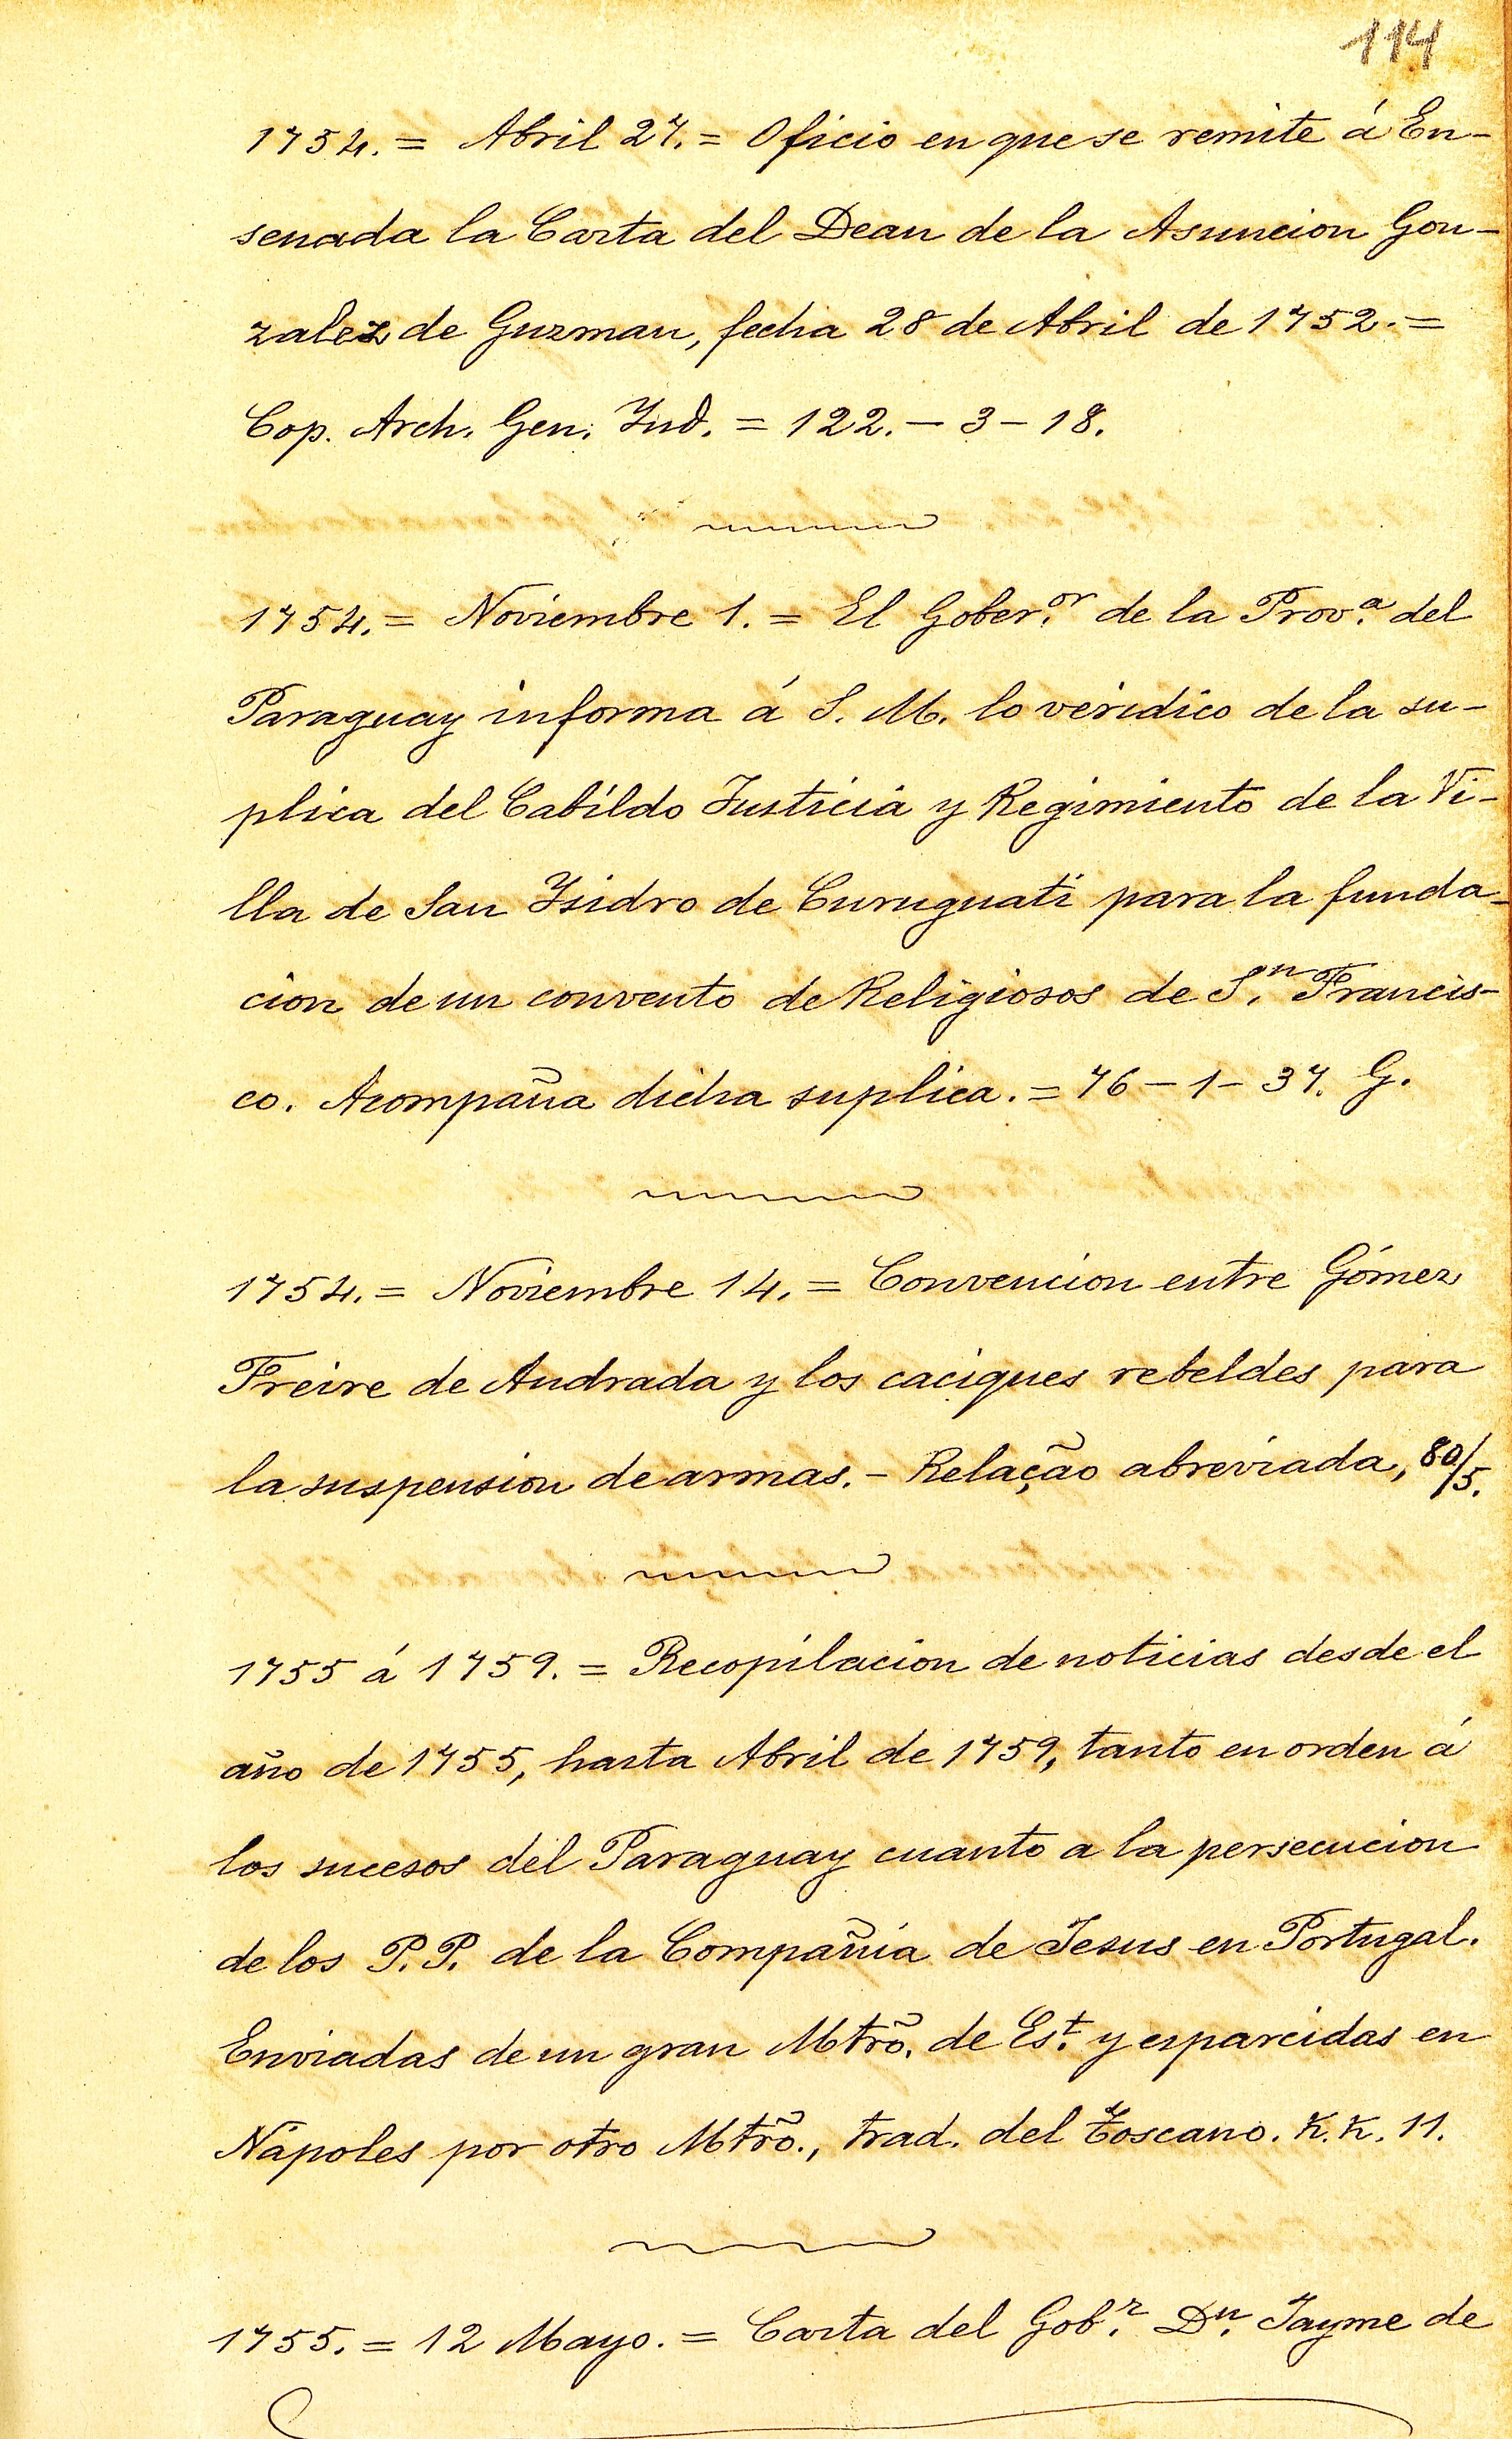 114
1754. = Abril 27. = Oficio en que se remite á En-
senada la Carta del Dean de la Asuncion Gon-
zalez de Guzman, fecha 28 de Abril de 1752. =
Cop. Arch. Gen. Ind. = 122. - 3 - 18.
1754. = Noviembre 1. = El Gober.or de la Prov.a del
Paraguay informa á S. M. lo veridico de la su-
plica del Cabildo Justicia y Regimiento de la Vi-
lla de San Isidro de Curuguati para la funda-
cion de un convento de Religiosos de S.n Francis-
co. Acompaña dicha suplica. = 76 - 1 - 37. G.
1754. = Noviembre 14. = Convencion entre Gómez
Freire de Andrada y los caciques rebeldes para
la suspension de armas. - Relação abreviada, 80/5.
1755 á 1759. = Recopilacion de noticias desde el
año de 1755, hasta Abril de 1759, tanto en orden á
los sucesos del Paraguay cuanto a la persecucion
de los P.P. de la Compañia de Jesus en Portugal.
Enviadas de un gran Mtrõ. de Es.t y esparcidas en
Nápoles por otro Mtrõ., trad. del Toscano. K.K. 11.
1755. = 12 Mayo. = Carta del Gob.r D.n Jayme de